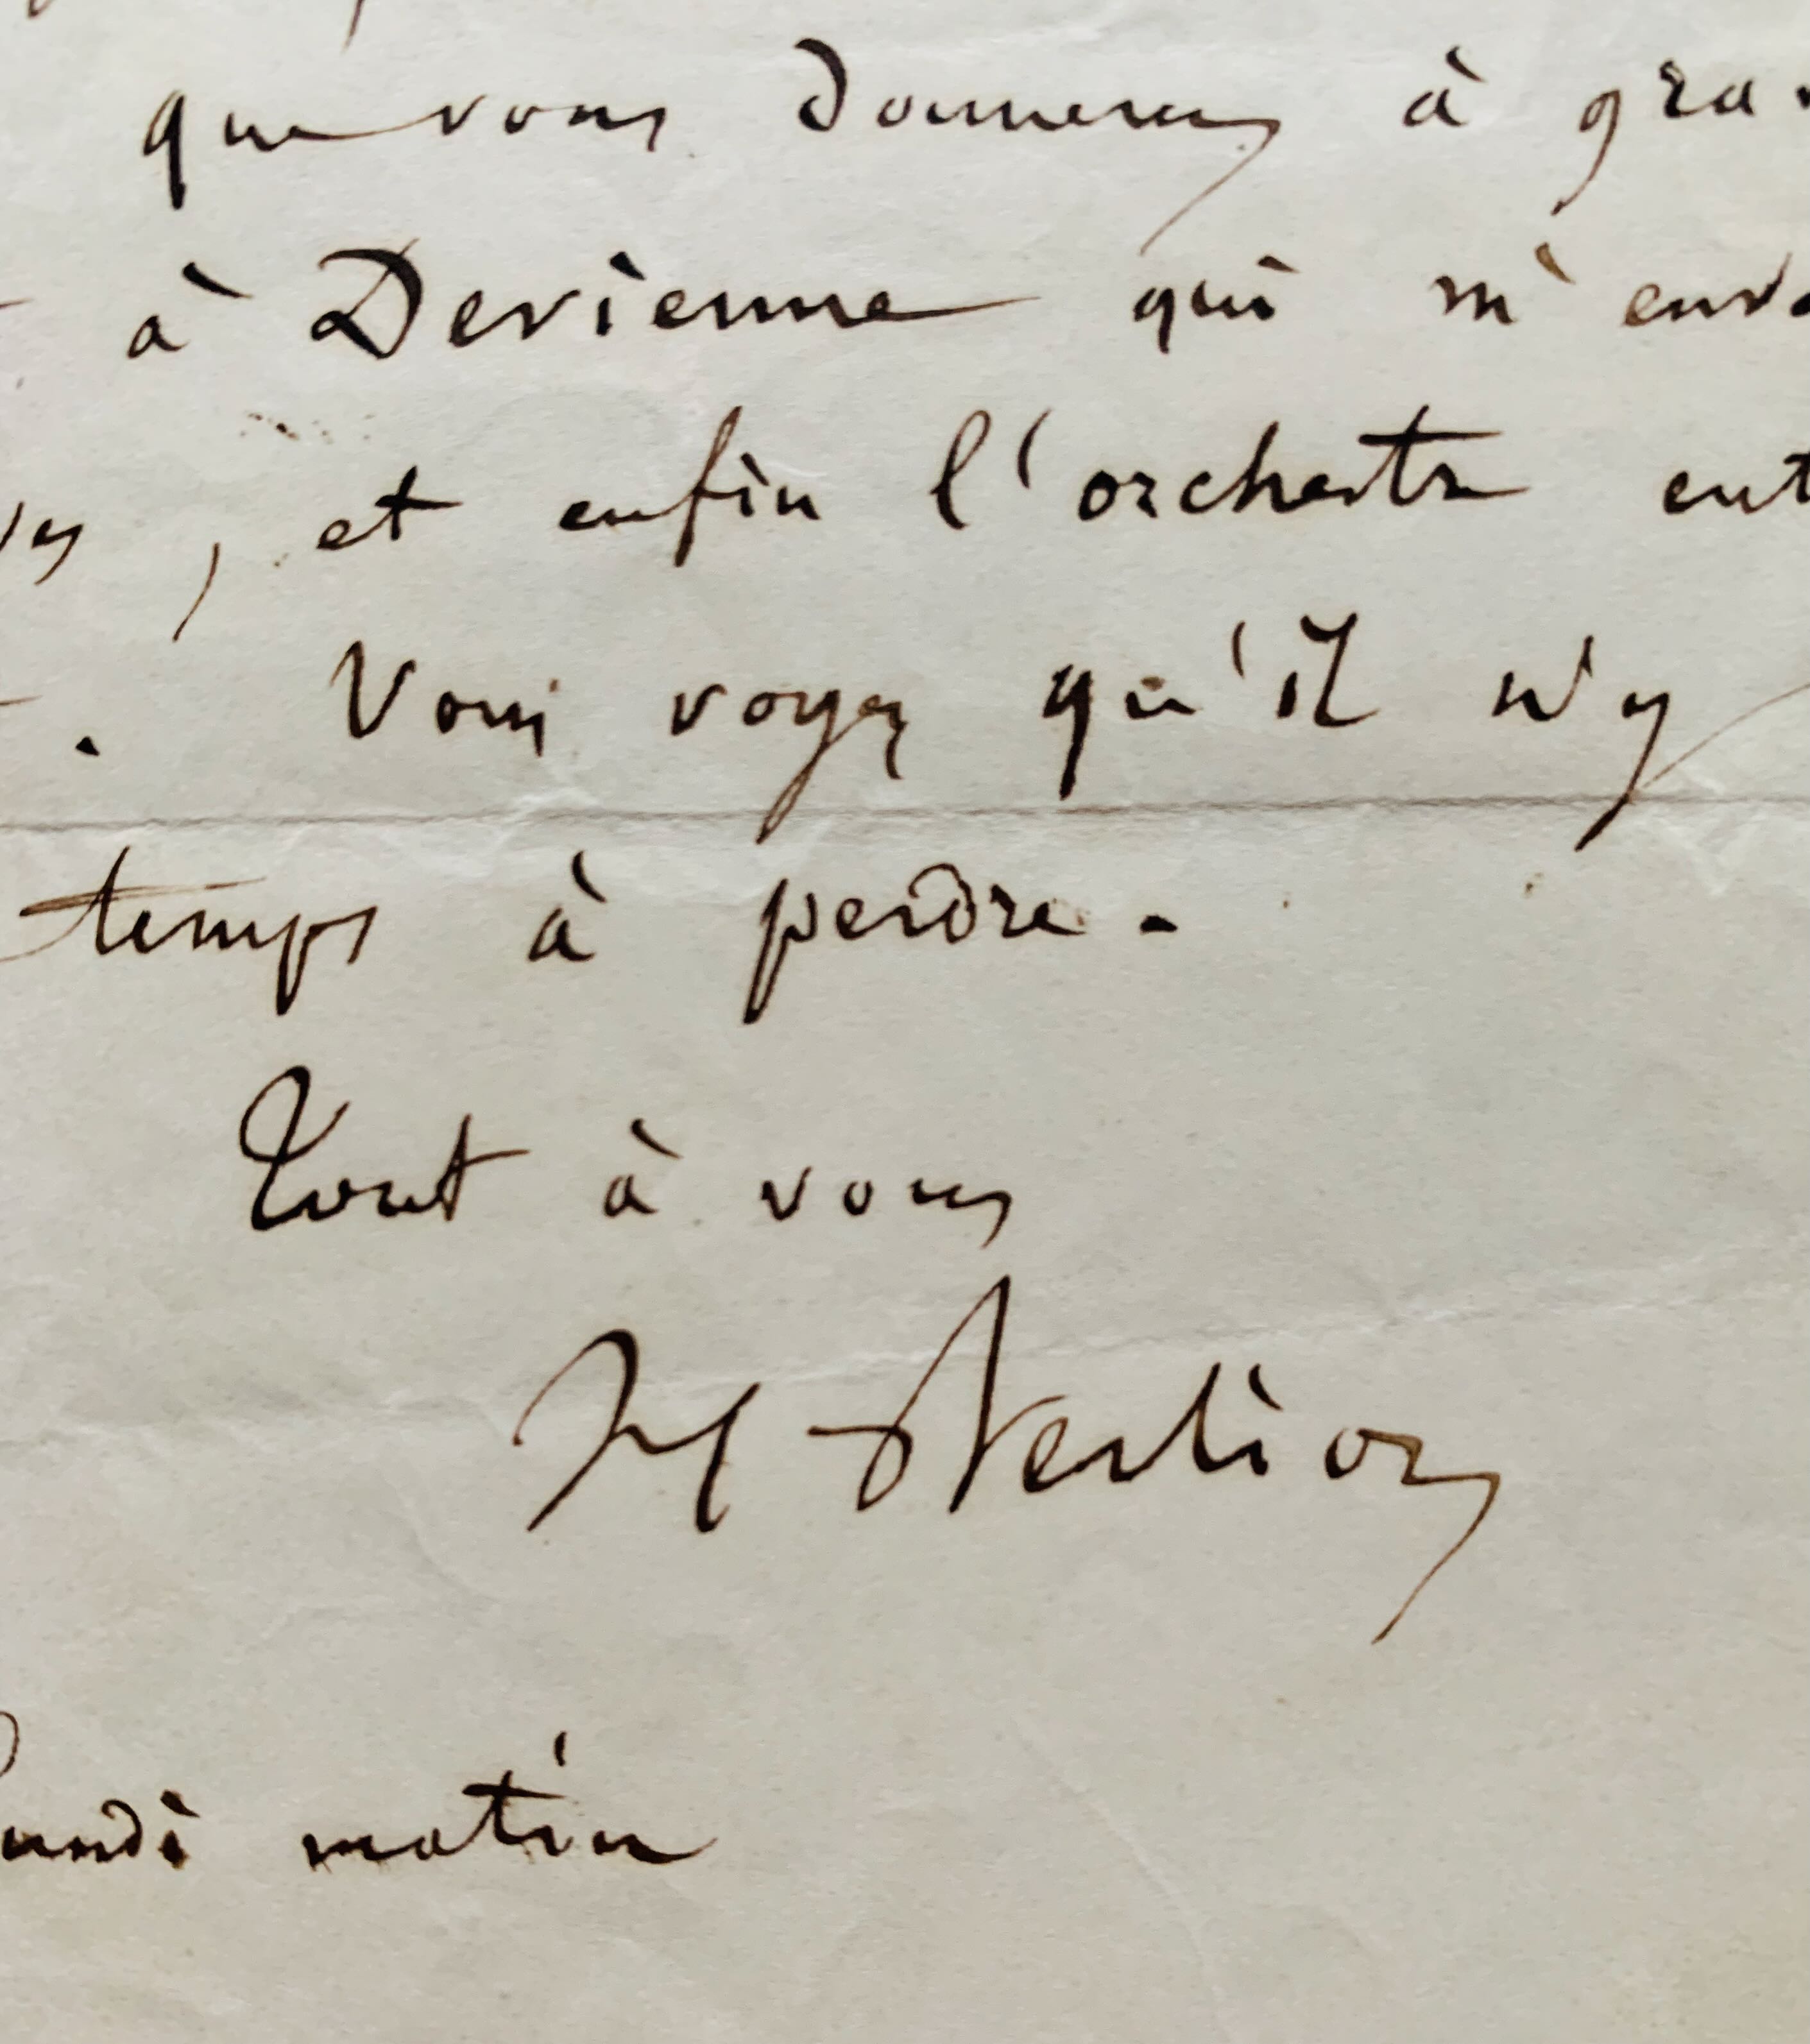 que vous donnerez à gra-
à Devienne qui m'env
et enfin l'orchestre ent
. Vous voyez qu'il n'y
temps à perdre.
Tout à vous
H Berlioz
undi matin